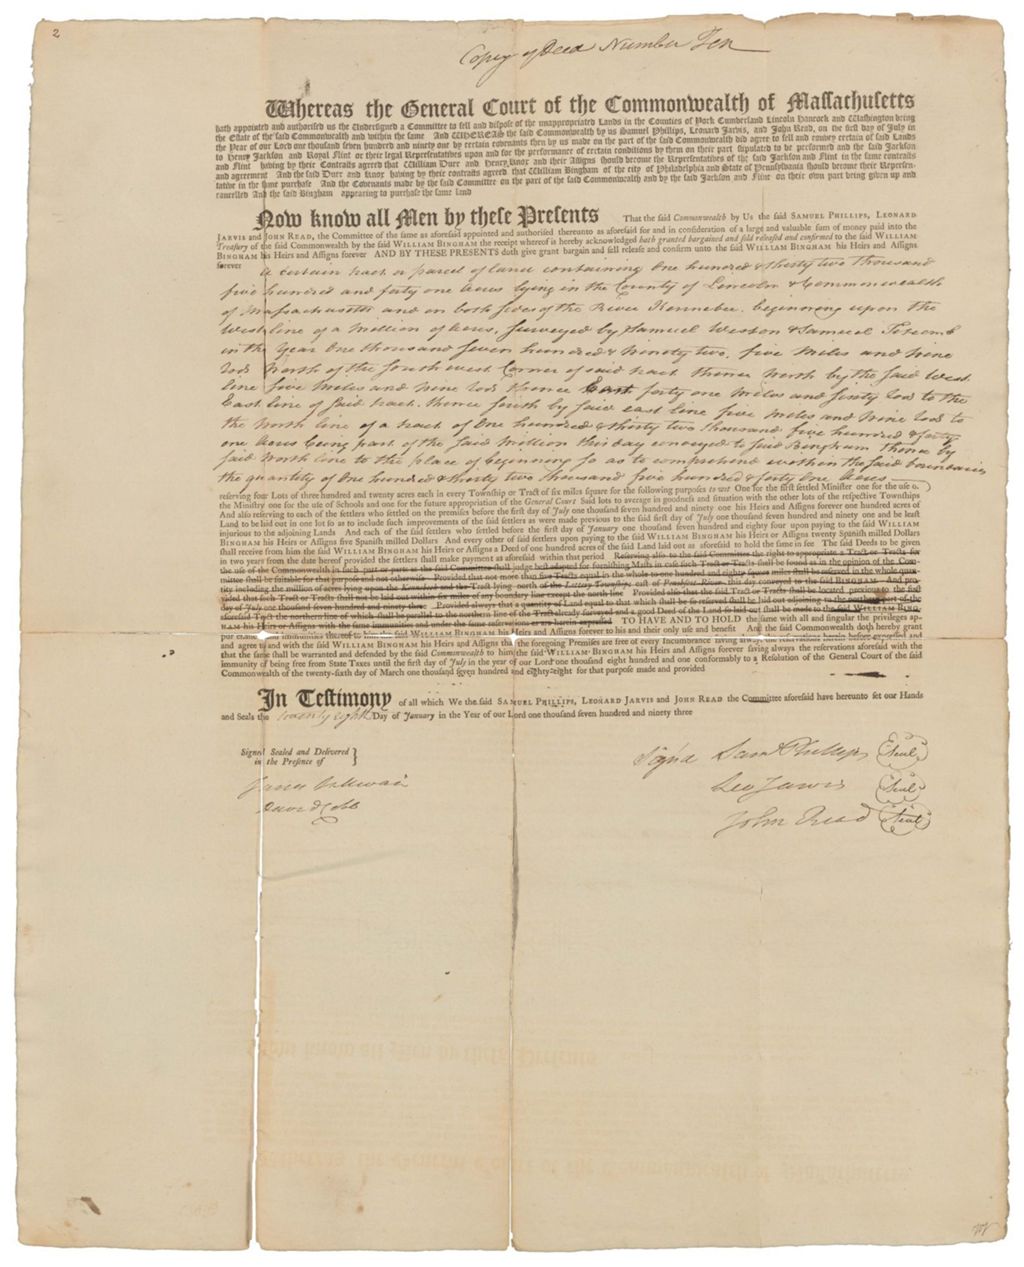 2
Copy of Deed Number Ten
Whereas the General Court of the Commonwealth of Massachusetts
hath appointed and authorised us the Undersigned a Committee to sell and dispose of the unappropriated Lands in the Counties of York Cumberland Lincoln Hancock and Washington being
the Estate of the said Commonwealth and within the same And WHEREAS the said Commonwealth by us Samuel Phillips, Leonard Jarvis, and John Read, on the first day of July in
the Year of our Lord one thousand seven hundred and ninety one by certain covenants then by us made on the part of the said Commonwealth did agree to sell and convey certain of said Lands
to Henry Jackson and Royal Flint or their legal Representatives upon and for the performance of certain conditions by them on their part stipulated to be performed and the said Jackson
and Flint having by their Contracts agreed that William Duer and Henry Knox and their Assigns should become the Representatives of the said Jackson and Flint in the same contracts
and agreement And the said Duer and Knox having by their contracts agreed that William Bingham of the city of Philadelphia and State of Pennsylvania should become their Represen-
tative in the same purchase And the Covenants made by the said Committee on the part of the said Commonwealth and by the said Jackson and Flint on their own part being given up and
cancelled And the said Bingham appearing to purchase the same land
Now know all Men by these Presents That the said Commonwealth by Us the said SAMUEL PHILLIPS, LEONARD
JARVIS and JOHN READ, the Committee of the same as aforesaid appointed and authorised thereunto as aforesaid for and in consideration of a large and valuable sum of money paid into the
Treasury of the said Commonwealth by the said WILLIAM BINGHAM the receipt whereof is hereby acknowledged hath granted bargained and sold released and confirmed to the said WILLIAM
BINGHAM his Heirs and Assigns forever AND BY THESE PRESENTS doth give grant bargain and sell release and confirm unto the said WILLIAM BINGHAM his Heirs and Assigns
forever
a certain tract or parcel of land containing One hundred & thirty two thousand
five hundred and forty one Acres lying in the County of Lincoln & Commonwealth
of Massachusetts and on both sides of the River Kennebec. beginning upon the
West line of a Million of Acres, surveyed by Samuel Weston & Samuel
in the Year One thousand seven hundred & Ninety two, five Miles and Nine
rods North of the southwest Corner of said tract thence North by the said West
line five Miles and Nine rods thence East forty one Miles and sixty rod to the
East line of said tract. thence south by said east line five Miles and Nine rod to
the North line of a tract of One hundred & thirty two thousand five hundred & forty
one Acres being part of the said Million this day conveyed to said Bingham thence by
said North line to the place of beginning so as to comprehend within the said boundaries
the quantity of One hundred & thirty two thousand five hundred & forty one Acres
reserving four Lots of three hundred and twenty acres each in every Township or Tract of six miles square for the following purposes to wit One for the first settled Minister one for the use o.
the Ministry one for the use of Schools and one for the future appropriation of the General Court Said lots to average in goodness and situation with the other lots of the respective Townships
And also reserving to each of the settlers who settled on the premises before the first day of July one thousand seven hundred and ninety one his Heirs and Assigns forever one hundred acres of
Land to be laid out in one lot so as to include such improvements of the said settlers as were made previous to the said first day of July one thousand seven hundred and ninety one and be least
injurious to the adjoining Lands And each of the said settlers who settled before the first day of January one thousand seven hundred and eighty four upon paying to the said WILLIAM
BINGHAM his Heirs or Assigns five Spanish milled Dollars And every other of said settlers upon paying to the said WILLIAM BINGHAM his Heirs or Assigns twenty Spanish milled Dollars
shall receive from him the said WILLIAM BINGHAM his Heirs or Assigns a Deed of one hundred acres of the said Land laid out as aforesaid to hold the same in fee The said Deeds to be given
in two years from the date hereof provided the settlers shall make payment as aforesaid within that period Reserving also to the said Committee the right to appropriate a Tract or Tracts for
the use of the Commonwealth in such part or parts as the said Committee shall judge best adapted for furnishing Masts in case such Tract or Tracts shall be found as in the opinion of the Com-
mittee shall be suitable for that purpose and not otherwise Provided that not more than five Tracts equal in the whole to one hundred and eighty square miles shall be reserved in the whole quan-
tity including the million of acres lying upon the Kennebeck and the Tract lying north of the Lottery Townships east of Penobscot River this day conveyed to the said BINGHAM And pro-
vided that such Tract or Tracts shall not be laid out within six miles of any boundary line except the north line Provided also that the said Tract or Tracts shall be located previous to the first
day of July one thousand seven hundred and ninety three Provided always that a quantity of Land equal to that which shall be so reserved shall be laid out adjoining to the northern part of the
aforesaid Tract the northern line of which shall be parallel to the northern line of the Tract already surveyed and a good Deed of the Land so laid out shall be made to the said WILLIAM BING-
HAM his Heirs or Assigns with the same immunities and under the same reservations as are herein expressed TO HAVE AND TO HOLD the same with all and singular the privileges ap-
immunities thereof to him the said WILLIAM BINGHAM his Heirs and Assigns forever to his and their only use and benefit And the said Commonwealth doth hereby grant
and agree to and with the said WILLIAM BINGHAM his Heirs and Assigns that the foregoing Premises are free of every Incumbrance saving always the reservations herein before expressed and
that the same shall be warranted and defended by the said Commonwealth to him the said WILLIAM BINGHAM his Heirs and Assigns forever saving always the reservations aforesaid with the
immunity of being free from State Taxes until the first day of July in the year of our Lord one thousand eight hundred and one conformably to a Resolution of the General Court of the said
Commonwealth of the twenty-sixth day of March one thousand seven hundred and eighty-eight for that purpose made and provided
In Testimony of all which We the said SAMUEL PHILLIPS, LEONARD JARVIS and JOHN READ the Committee aforesaid have hereunto set our Hands
and Seals the twenty eighth Day of January in the Year of our Lord one thousand seven hundred and ninety three
Signed Sealed and Delivered
in the Presence of }
David Cobb
Sign'd Saml Phillips (Seal)
Leo Jarvis (Seal)
John Read (Seal)